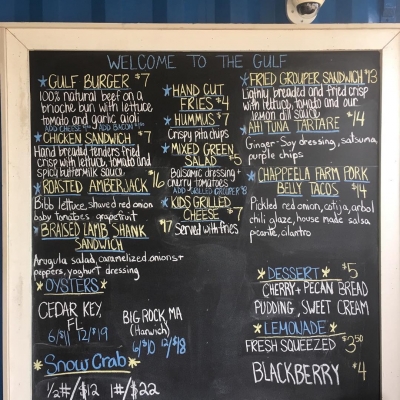 WELCOME TO THE GULF
*GULF BURGER $7
100% natural beef on a
brioche bun with lettuce
tomato and garlic aioli
ADD CHEESE ADD BACON
*CHICKEN SANDWICH $7
Hand breaded tenders fried
crisp with lettuce, tomato and
spicy buttermilk sauce
*ROASTED AMBERJACK $16
Bibb lettuce, shaved red onion
baby tomatoes grapefruit
*BRAISED LAMB SHANK
SANDWICH $17
Arugula salad, caramelized onions+
peppers, yoghurt dressing
*OYSTERS*
CEDAR KEY,
FL
6/$11 12/$19
BIG ROCK, MA
(Harwich)
6/$10 12/$18
*Snow Crab*
1/2#/$12 1#/$22
*HAND CUT
FRIES $4
*HUMMUS $7
Crispy pita chips
*MIXED GREEN
SALAD $5
Balsamic dressing+
cherry tomatoes
ADD GRILLED GROUPER $8
*KIDS GRILLED
CHEESE $7
Served with fries
*FRIED GROUPER SANDWICH $13
Lightly breaded and fried crisp
with lettuce, tomato and our
lemon dill sauce
*AHI TUNA TARTARE $14
Ginger-Soy dressing, satsuma,
purple chips
*CHAPPEELA FARM PORK
BELLY TACOS $14
Pickled red onion, cotija, arbol
chili glaze, house made salsa
picante, cilantro
*DESSERT* $5
CHERRY+PECAN BREAD
PUDDING, SWEET CREAM
*LEMONADE*
FRESH SQUEEZED $3.50
BLACKBERRY $4